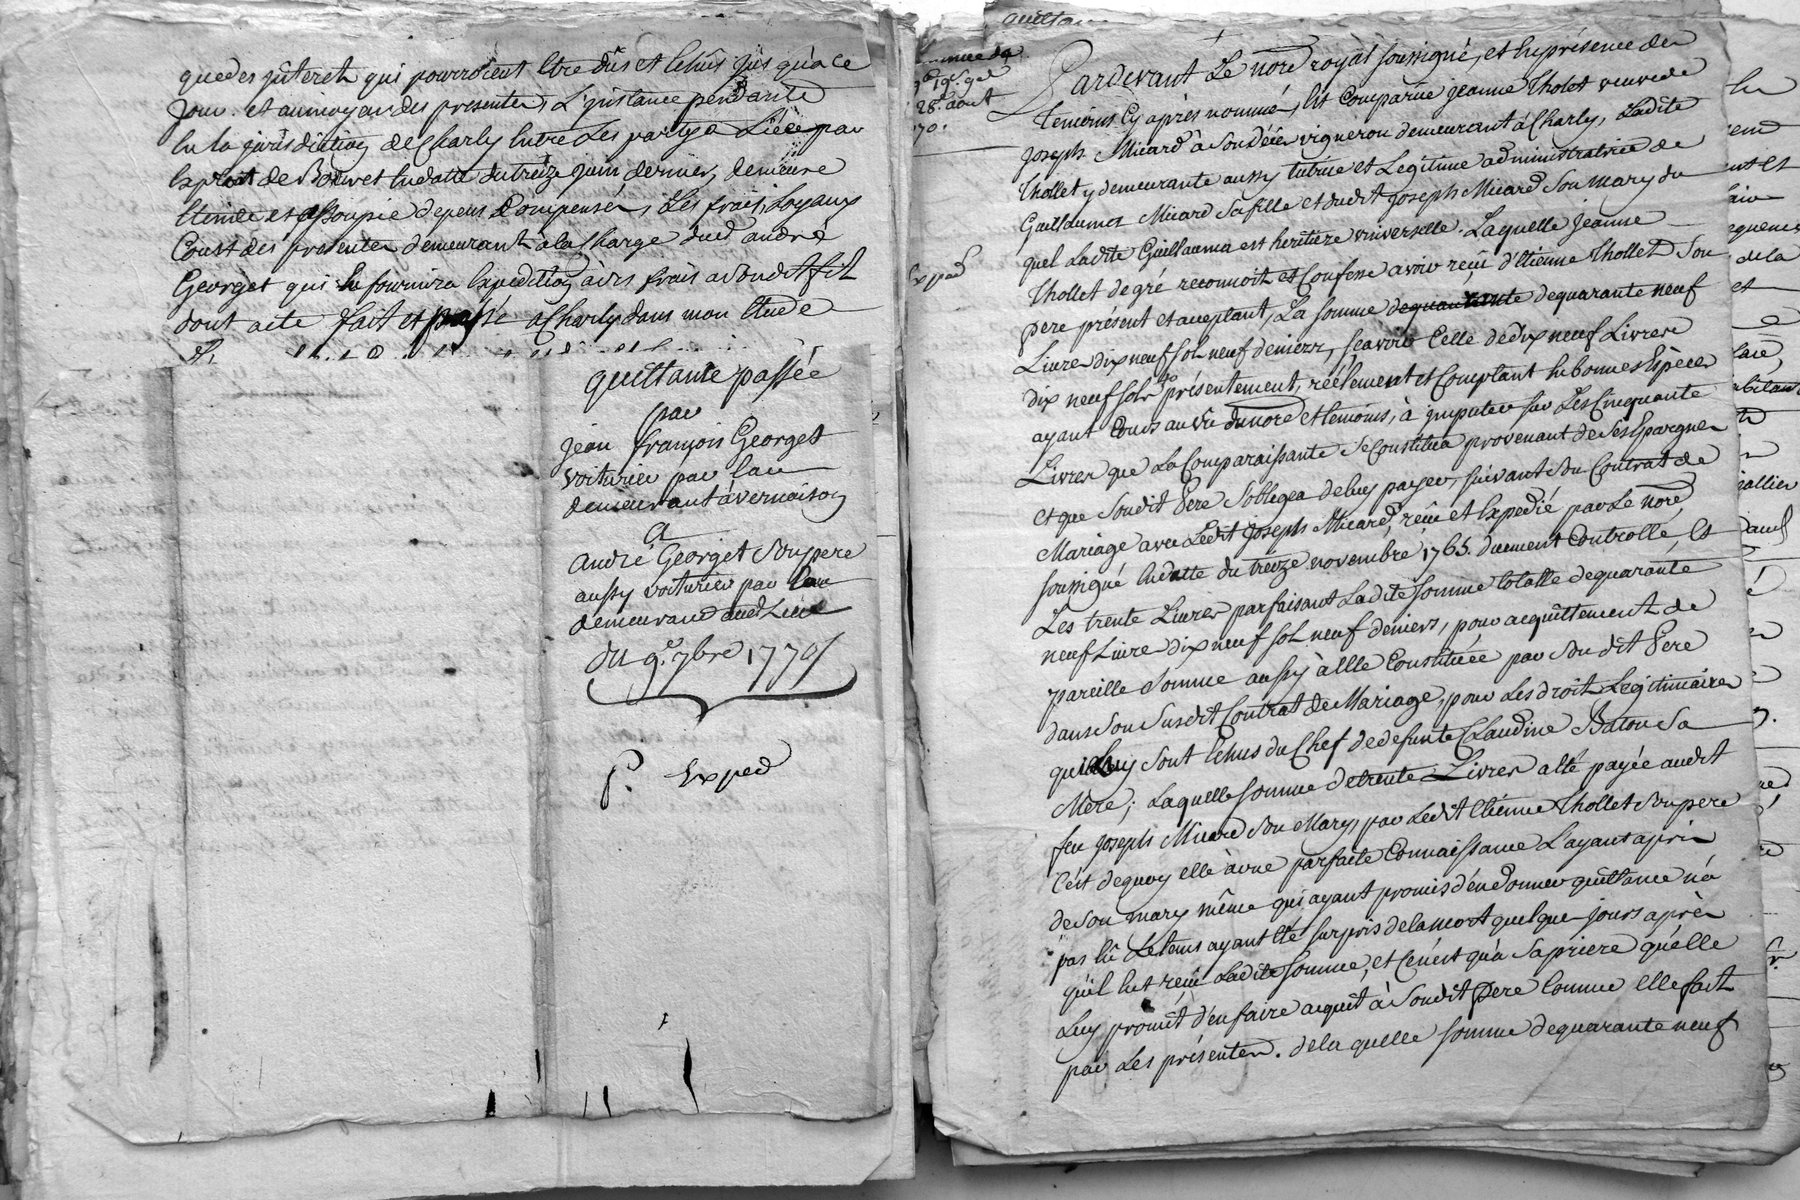 quedes jnterets qui pourroient Etre dûs et Echûs jusqu'a ce
jour. et au moyen des presentes, L'jnstance pendante
En La jurisdiction de Charly Entre Les partyes Liée par
Exploit de Bouvet En datte du treize juin dernier, demeure
Eteinte et assoupie depens Compensés, Les frais, Loyaux
Coust des presentes demeurant à la Charge dud andré
Georget qui En fournira Expedition à ses frais a Sondit fils
dont acte fait et passé a Charly dans mon Etude
quittance passée
par
jean françois Georget
voiturier par Eau
demeurant à vernaison
A
André Georget Son pere
aussy voiturier par Eau
demeurand aud Lieu
du 9.e 7bre 1770
P. Exped
quittance
28.e aout
Exped
Pardevant Le nore royal soussigné, et En présence des
temoins Cy après nommés, Est Comparüe jeanne Thollet veuve de
joseph Micard à Son décès vigneron demeurant à Charly, Ladite
Thollet y demeurante aussy tutrice et Legitime administratrice de
Guillaumes Micard Sa fille et dudit joseph Micard Son mary du
quel Ladite Guillauma est heritiere universelle. Laquelle jeanne
Thollet de gré reconnoit et Confesse avoir reçû d'Etienne Thollet Son
pere présent et acceptant, La somme de quarante neuf
Livres dix neuf sols neuf deniers, sçavoir Celle de dix neuf Livres
dix neuf sols présentement, réelement et Comptant En bonnes Espèces
ayant Cours au vû du nore et temoins, à jmputer sur Les Cinquante
Livres que La Comparaissante Se Constitua provenant de Ses Epargnes
et que Sondit Pere S'obligea de luy payer, Suivant Son Contrat de
Mariage avec Ledit Joseph Micard, reçu et Expedié par Le nore
soussigné En datte du treize novembre 1765. duement Controllé, Et
Les trente Livres parfaisant Ladite somme totalle de quarante
neuf Livres dix neuf sols neuf deniers, pour acquittement de
pareille Somme aussy à Elle Constituée par Son dit Pere
dans Son Susdit Contrat de Mariage, pour Les droits Legitimaires
qui Luy Sont Echus du Chef de defunte Claudine Baton Sa
Mere; Laquelle Somme de trente Livres a été payée audit
feu joseph Micard Son Mary, par Ledit Etienne Thollet Son pere
C'est dequoy elle à une parfaite Connaissance L'ayant apris
de Son mary même qui ayant promis d'En donner quittance n'a
pas Eû Le tems ayant Eté surpris de la mort quelques jours après
qu'il Eut reçu Ladite somme, et Ce n'est qu'à Sa priere qu'elle
Luy promit d'en faire acquit à Sondit Pere Comme elle fait
par Les présentes. de la quelle somme de quarante neuf